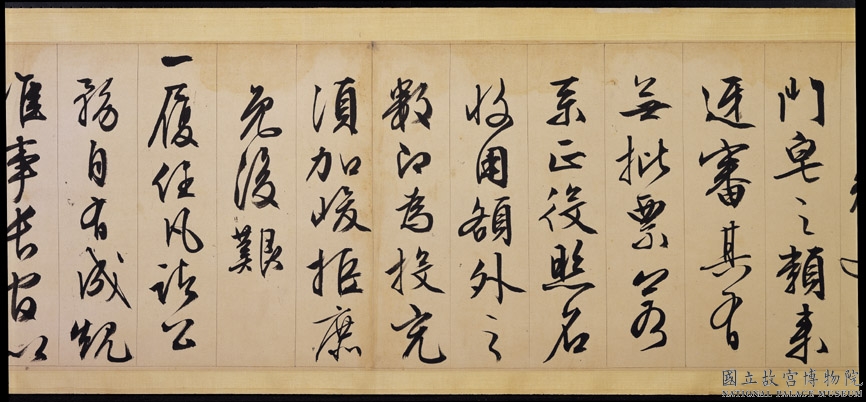 門皂之類來
遞審其有
無批票若
系正役照名
收用額外之
數即為投充
須加峻拒庶
免後艱
一履任凡諸公
務自有成規
事長官以
國立故宮博物院
NATIONAL PALACE MUSEUM